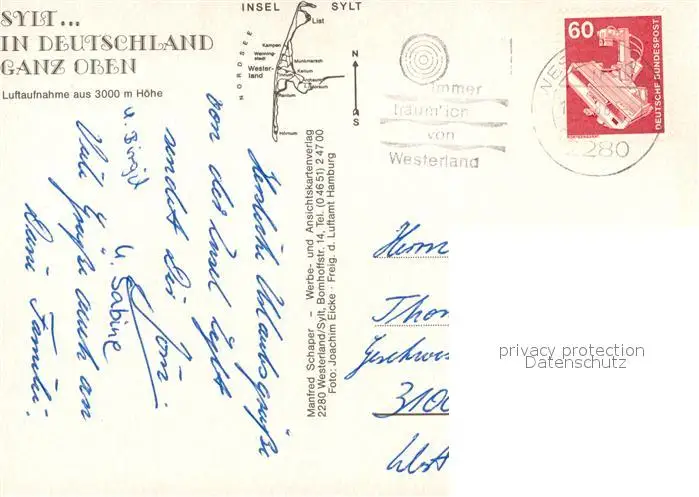 SYLT...
IN DEUTSCHLAND
GANZ OBEN
Luftaufnahme aus 3000 m Höhe
INSEL SYLT
NORDSEE
List
Kampen
Westerland
Munkmarsch
Keitum
Rantum
Hörnum
N
S
immer
träum' ich
von
Westerland
60
DEUTSCHE BUNDESPOST
2280
Manfred Schaper - Werbe- und Ansichtskartenverlag
2280 Westerland/Sylt, Bomhoffstr. 14, Tel. (0 46 51) 2 47 00
Foto: Joachim Eicke · Freig. d. Luftamt Hamburg
Herzliche Urlaubsgrüße
von der Insel Sylt
sendet Dir
u. Birgit
u. Sabine
Viele Grüße auch an
Deine Familie.
Herrn
Thom
Geschwis
3100
privacy protection
Datenschutz